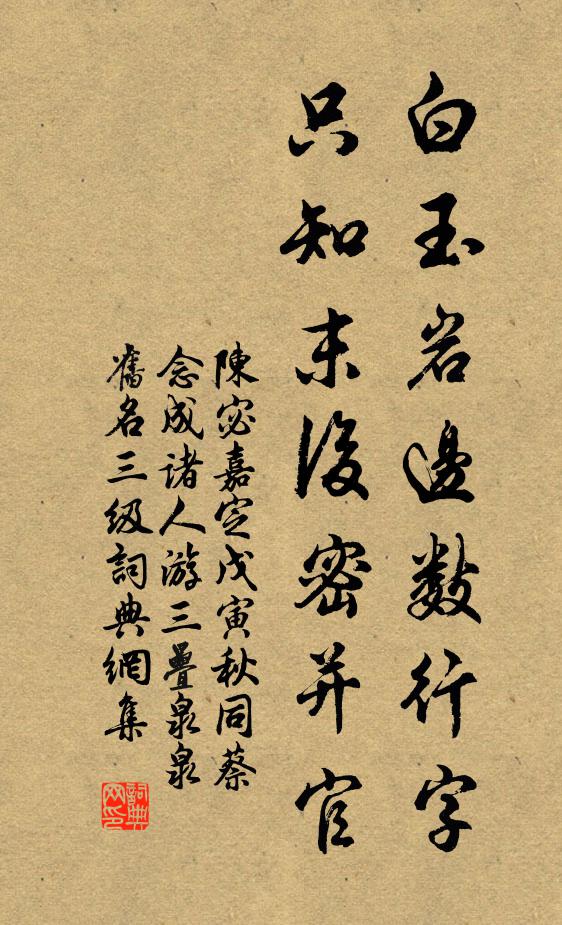 白玉岩邊數行字
只知末後密并官
陳宓嘉定戊寅秋同蔡
念成诸人游三疊泉泉
舊名三级詞典網集
詞典
网印